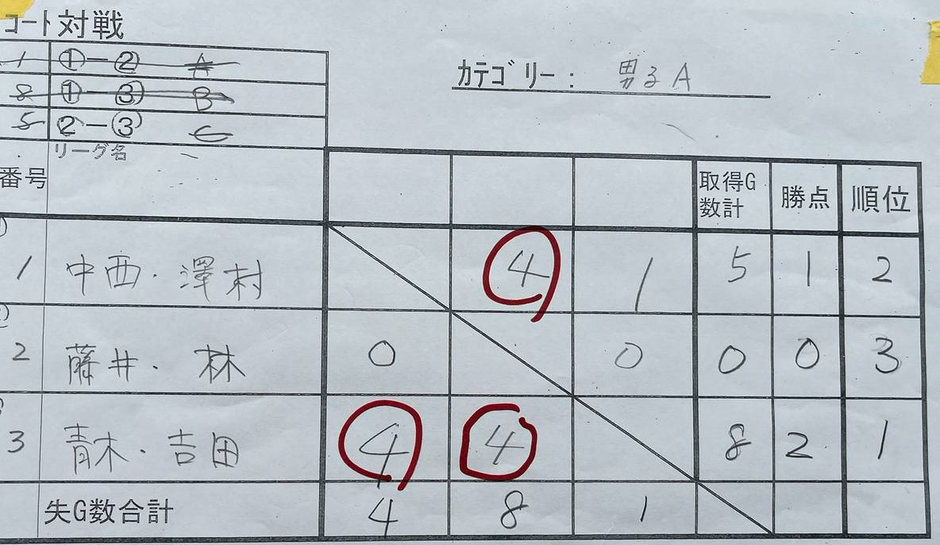 コート対戦
1 ①-② A
8 ①-③ B
5 ②-③ C
カテゴリー： 男子A
リーグ名
番号 取得G数計 勝点 順位
1 中西・澤村 4 1 5 1 2
2 藤井・林 0 0 0 0 3
3 青木・吉田 4 4 8 2 1
失G数合計 4 8 1